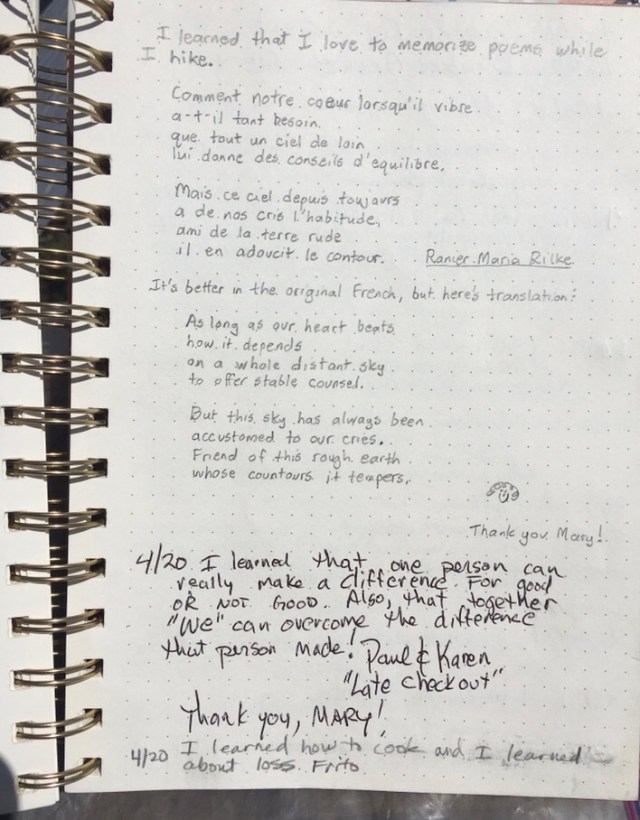 I learned that I love to memorize poems while
I hike.
Comment notre coeur lorsqu'il vibre
a-t-il tant besoin
que tout un ciel de loin
lui donne des conseils d'equilibre.
Mais ce ciel depuis toujours
a de nos cris l'habitude,
ami de la terre rude
il en adoucit le contour. Ranier Maria Rilke
It's better in the original French, but here's translation:
As long as our heart beats
how it depends
on a whole distant sky
to offer stable counsel.
But this sky has always been
accustomed to our cries.
Friend of this rough earth
whose countours it tempers.
Thank you Mary!
4/20 I learned that one person can
really make a difference. For good
OR NOT GOOD. Also, that together
"We" can overcome the difference
that person made! Paul & Karen
"Late checkout"
Thank you, MARY!
4/20 I learned how to cook and I learned
about loss. Frito